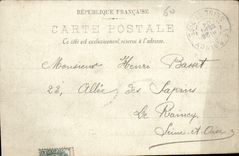 RÉPUBLIQUE FRANÇAISE
CARTE POSTALE
Ce côté est exclusivement réservé à l'adresse.
Monsieur Henri Basset
22, Allée des Sapins
Le Raincy
Seine et Oise